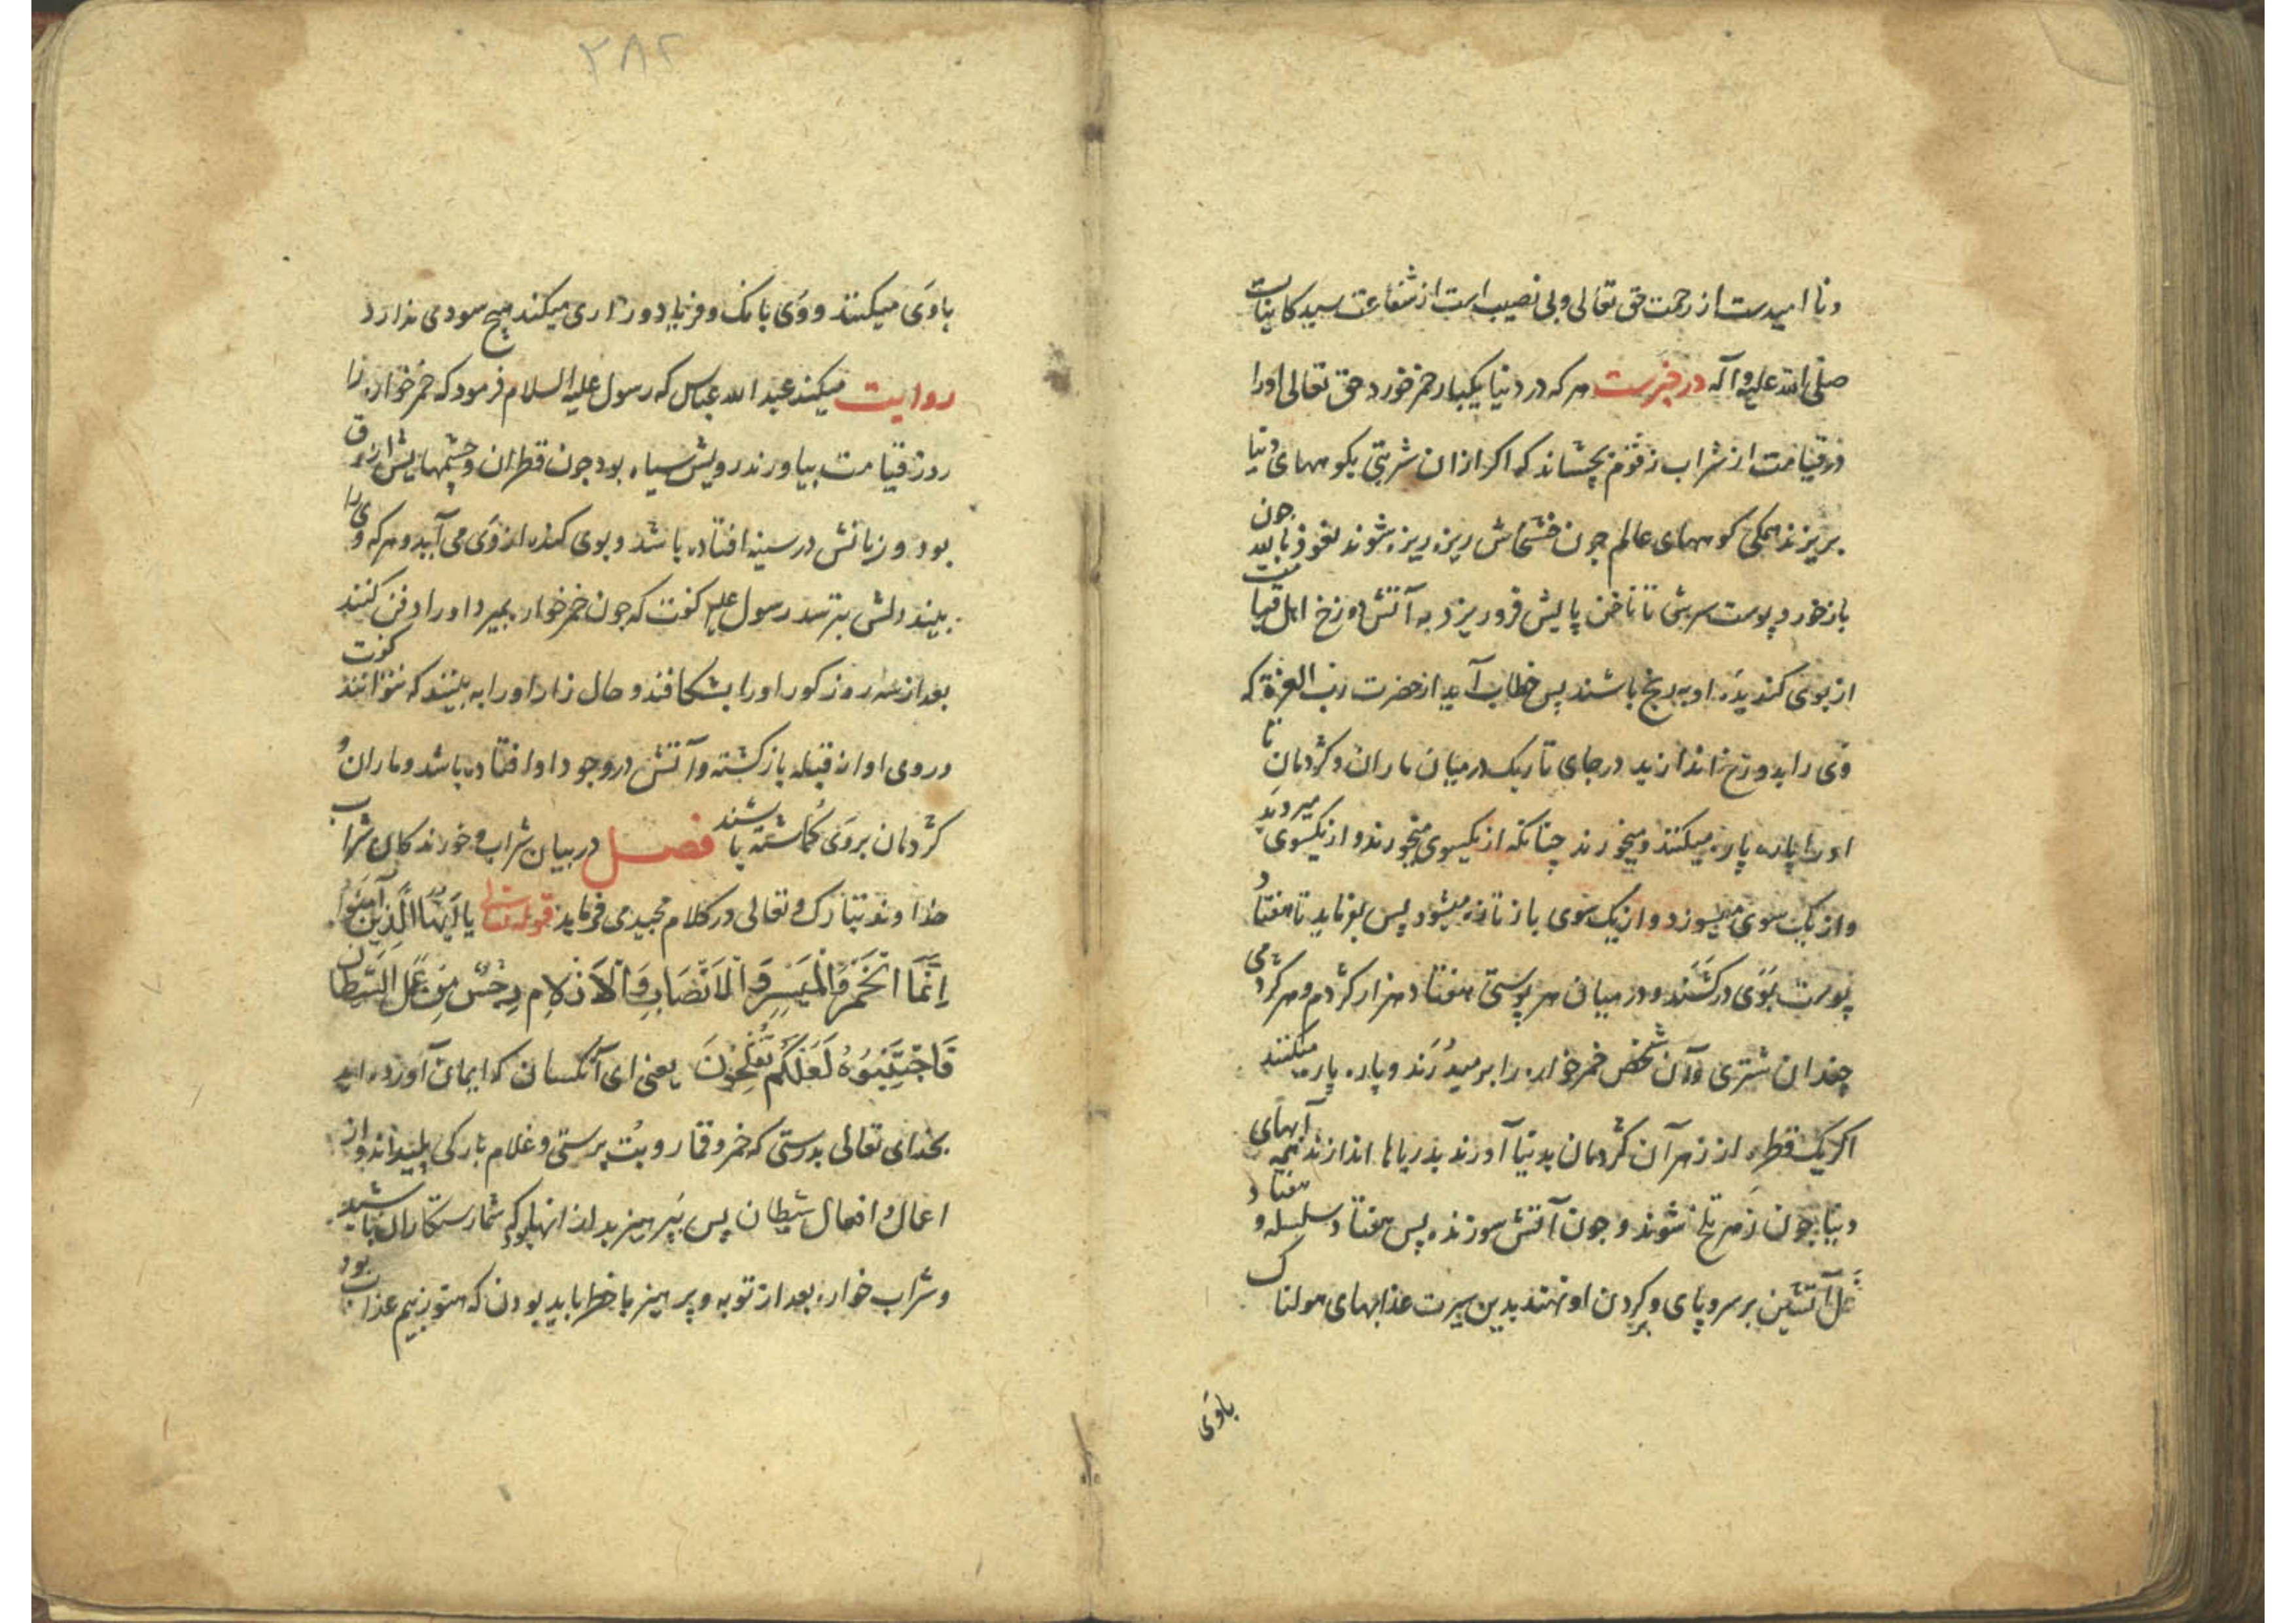 و نا امیدست از رحمت حق تعالی و بی نصیب است از شفاعت سید کاینات
صلی الله علیه و آله در خبرست هر که در دنیا یکبار خمر خورد حق تعالی او را
در قیامت از شراب زقوم بچشاند که اکر از ان شربتی بکوههای دنیا
بریزند همکی کوههای عالم جون خشخاش ریزه ریزه شوند نعوذ بالله جون
باز خورد پوست سرش تا ناخن پایش فرو ریزد به آتش دوزخ اهل قیامت
از بوی کندیده او به رنج باشند پس خطاب آید از حضرت رب العزة که
وی را بدوزخ اندازید در جای تاریک در میان ماران و کژدمان تا
او را پاره پاره میکنند و میخورند چنانکه از یکسوی میخورند و از یکسوی میروید
و از یک سوی میسوزد و از یک سوی باز تازه میشود پس بفرماید تا هفتاد
پوست بوی درکشند و در میان هر پوستی هفتاد هزار کژدم و هر کژدمی
چندان شتری و آن شخص خمر خواره را بر میدرند و پاره پاره میکنند
اکر یک قطره از زهر آن کژدمان بدنیا آورند بدریاها اندازند همه آبهای
دنیا جون زهر تلخ شوند و جون آتش سوزنده پس هفتاد سلسله و هفتاد
غل آتشین بر سر و پای و بر کردن او نهند بدین سیرت عذابهای هولناک
باوی
۲۸۲
باوی میکنند و وی بانک و فریاد و زاری میکند هیچ سودی ندارد
روایت میکند عبد الله عباس که رسول علیه السلام فرمود که خمر خواره را
روز قیامت بیاورند رویش سیاه بود جون قطران و چشمهایش ازرق
بود و زبانش در سینه افتاده باشد و بوی کنده از وی می آید و هر که وی را
بیند دلش بترسد رسول علیه کفت که جون خمر خواره بمیرد او را دفن کنند
بعد از سه روز کور او را بشکافند و حال زار او را به بینند که نتوانند کفت
و روی او از قبله باز کشته و آتش در وجود او افتاده باشد و ماران و
کژدمان بروی کماشته باشند فصل در بیان شراب و خورندکان شراب
خداوند تبارک و تعالی در کلام مجید می فرماید قوله تعالی یا أیها الذین آمنوا
إنما الخمر والمیسر والأنصاب والأزلام رجس من عمل الشیطان
فاجتنبوه لعلکم تفلحون یعنی ای آنکسان که ایمان آورده اید
بخدای تعالی بدرستی که خمر و قمار و بت پرستی و غلام بارکی پلیداند و از
اعمال و افعال شیطان پس بپرهیزید از انها که شما رستکاران باشید
و شراب خواره بعد از توبه و پرهیز با خطر باید بودن که هنوز بیم عذاب بود